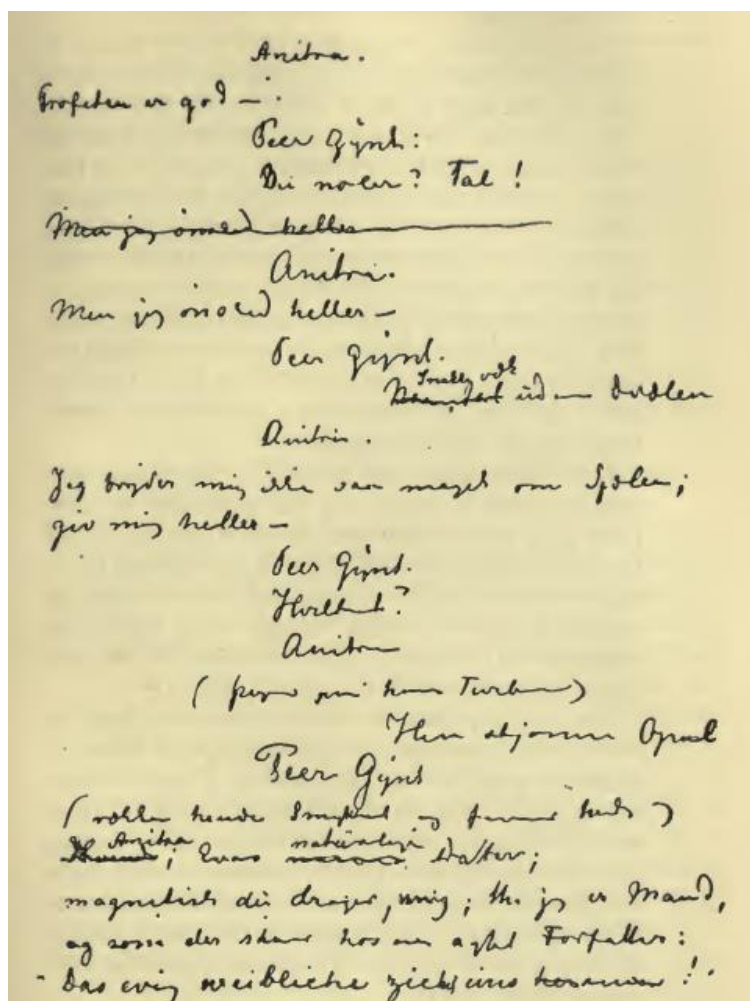 Anitra.
Profeten er god —.
Peer Gÿnt:
Du nøler? Tal!
Men jeg ønsked heller
Anitra.
Men jeg ønsked heller —
Peer Gÿnt.
Snakk væk
uden Dvælen
Anitra.
Jeg bryder mig ikke saa meget om Sjælen;
giv mig heller —
Peer Gÿnt.
Hvilket?
Anitra
(peger paa hans Turban)
Hin skjønne Opal
Peer Gÿnt
(rækker hende Smykket og
Anitra naturlige
; Evas Datter;
magnetisk du drager mig; thi jeg er Mand,
og som der staar hos en agtet Forfatter:
"Das ewig weibliche zieht uns !"